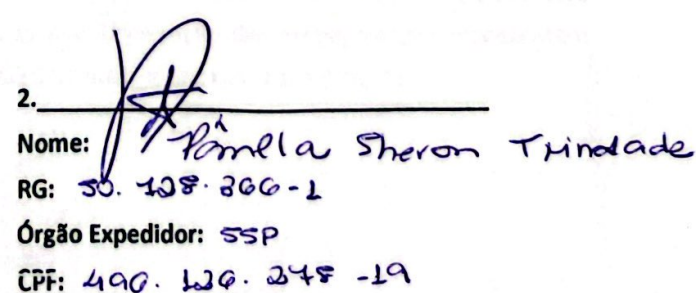 2.
Nome: Pâmella Sheron Trindade
RG: 50.128.366-1
Órgão Expedidor: SSP
CPF: 490.126.278-19